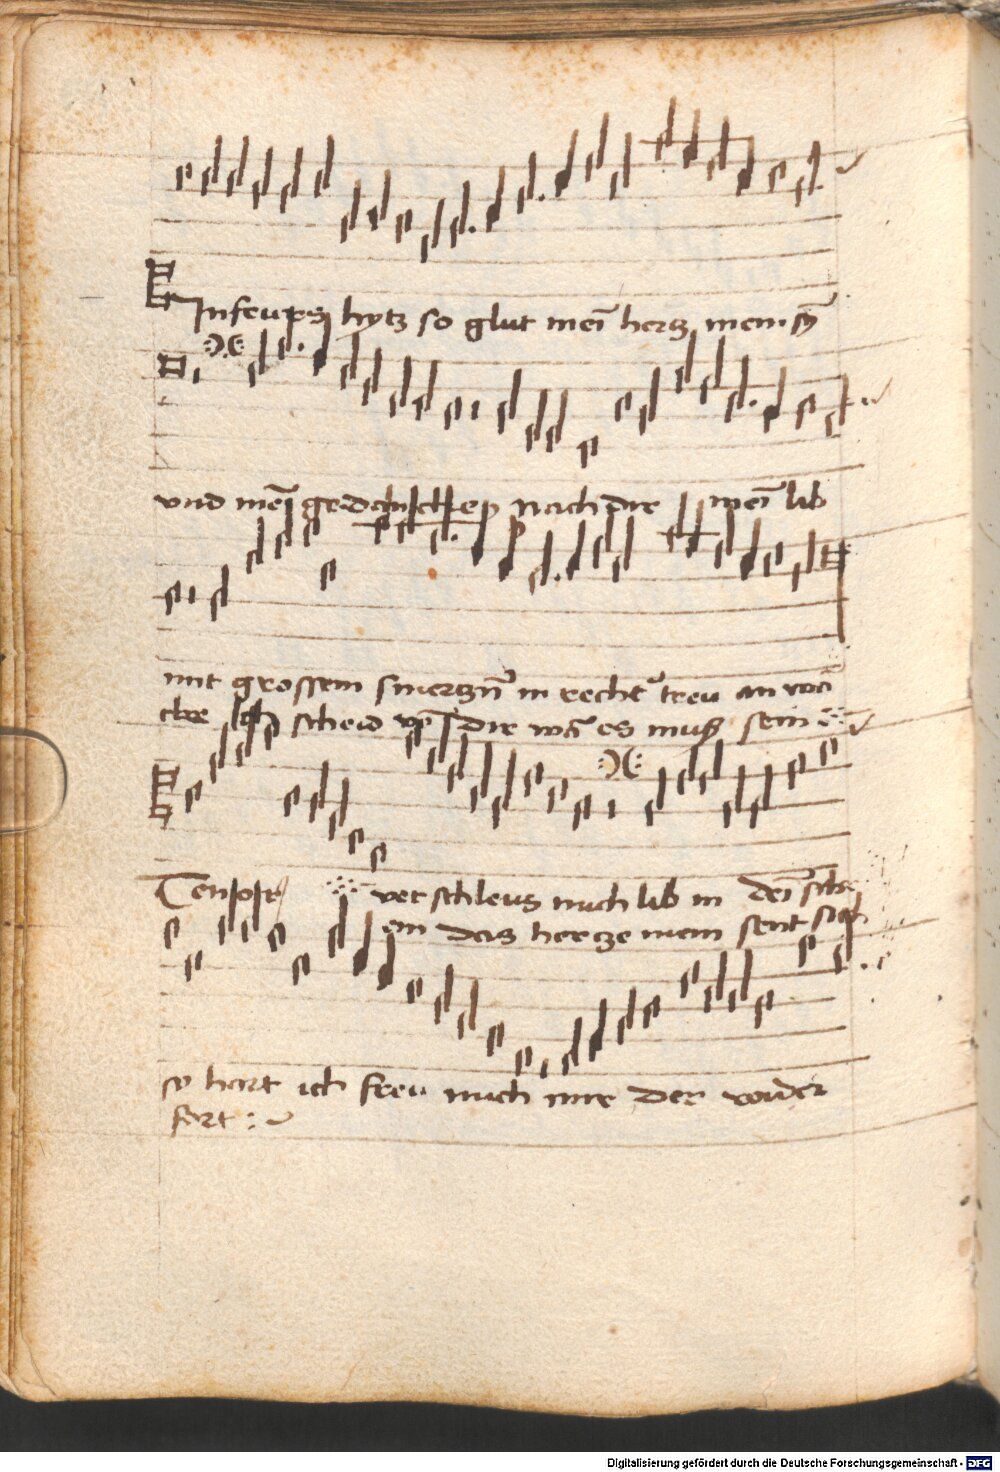 In feurs hytz so glut mei hertz mein sy
vnd mei gedch nach dir mei lib
mit grossem smertzn in recht treu an
ich scheid vo dir wa es muß sein
Tenor ver schleus mich lib in dei
ein das hertze mein sent sich
so hart ich freu mich mir der wider
fart
Digitalisierung gefördert durch die Deutsche Forschungsgemeinschaft - DFG